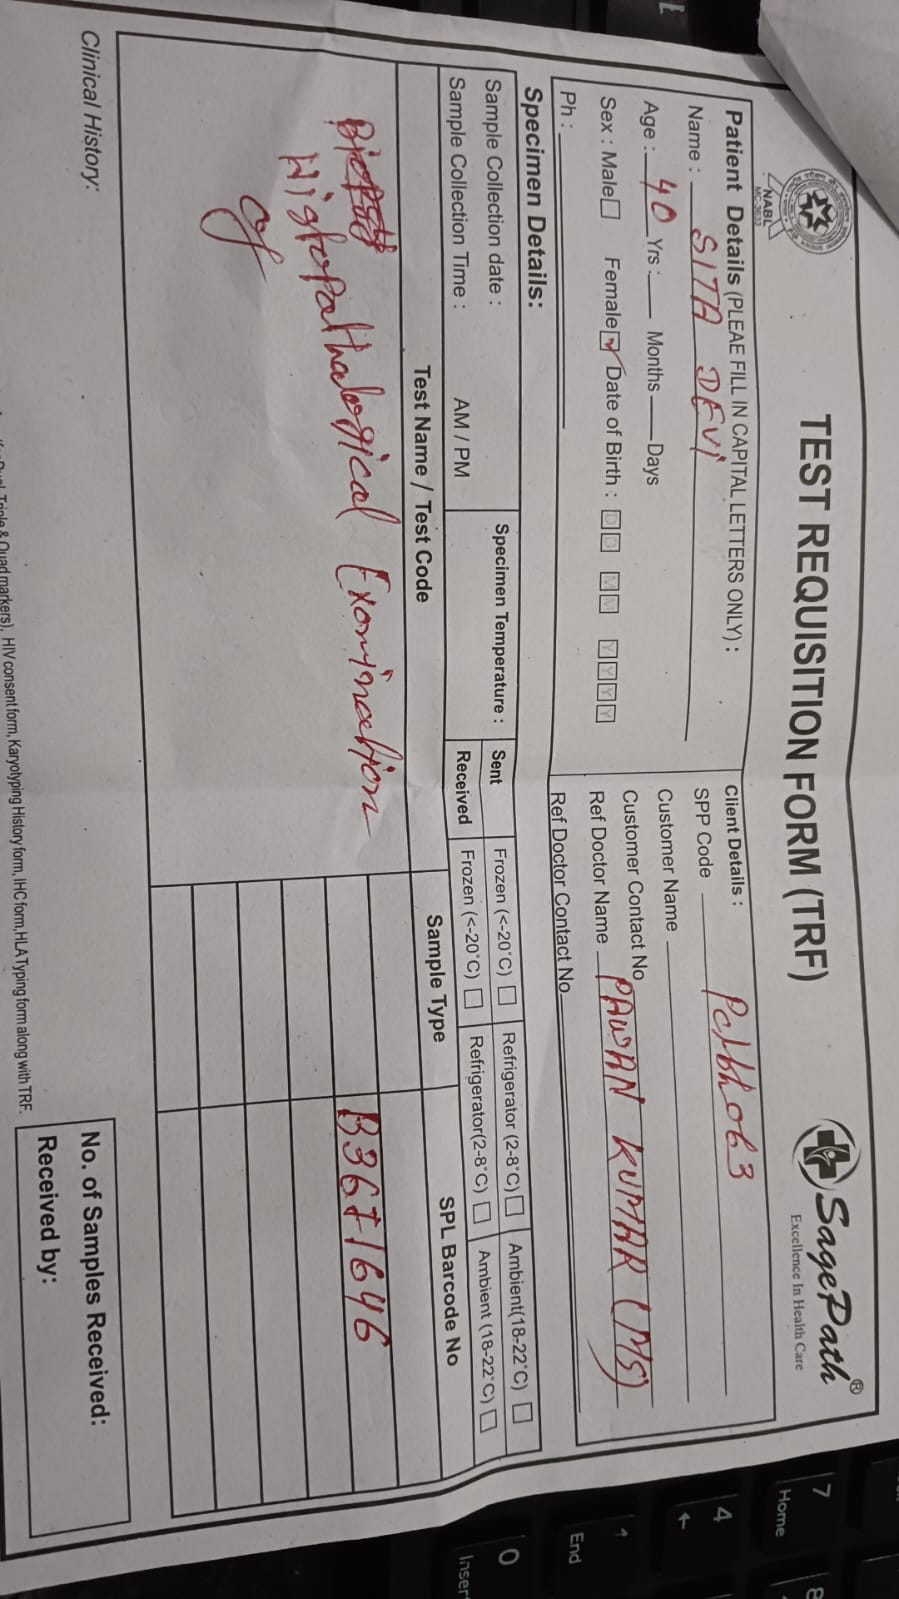 TEST REQUISITION FORM (TRF)
SagePath®
Excellence In Health Care
NABL
MC-3633
Patient Details (PLEAE FILL IN CAPITAL LETTERS ONLY) :
Name : SITA DEVI
Age : 40 Yrs : Months Days
Sex : Male Female Date of Birth : D D M M Y Y Y Y
Ph :
Client Details :
SPP Code
Customer Name
Customer Contact No
Ref Doctor Name PAWAN KUMAR (MS)
Ref Doctor Contact No
Specimen Details:
Sample Collection date :
Sample Collection Time : AM / PM
Specimen Temperature :
Sent Frozen (<-20°C) Refrigerator (2-8°C) Ambient(18-22°C)
Received Frozen (<-20°C) Refrigerator(2-8°C) Ambient (18-22°C)
Test Name / Test Code Sample Type SPL Barcode No
Histopathological Examination
of
B3671646
Clinical History:
No. of Samples Received:
Received by:
Triple & Quad markers), HIV consent form, Karyotyping History form, IHC form, HLA Typing form along with TRF.
7
Home
8
4
←
1
End
0
Inser